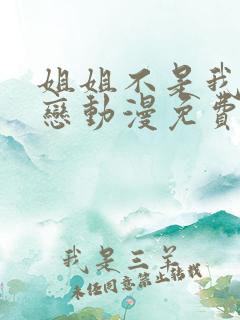 姐姐不是我
戀動漫免費
我是三羊
未经同意禁止转载